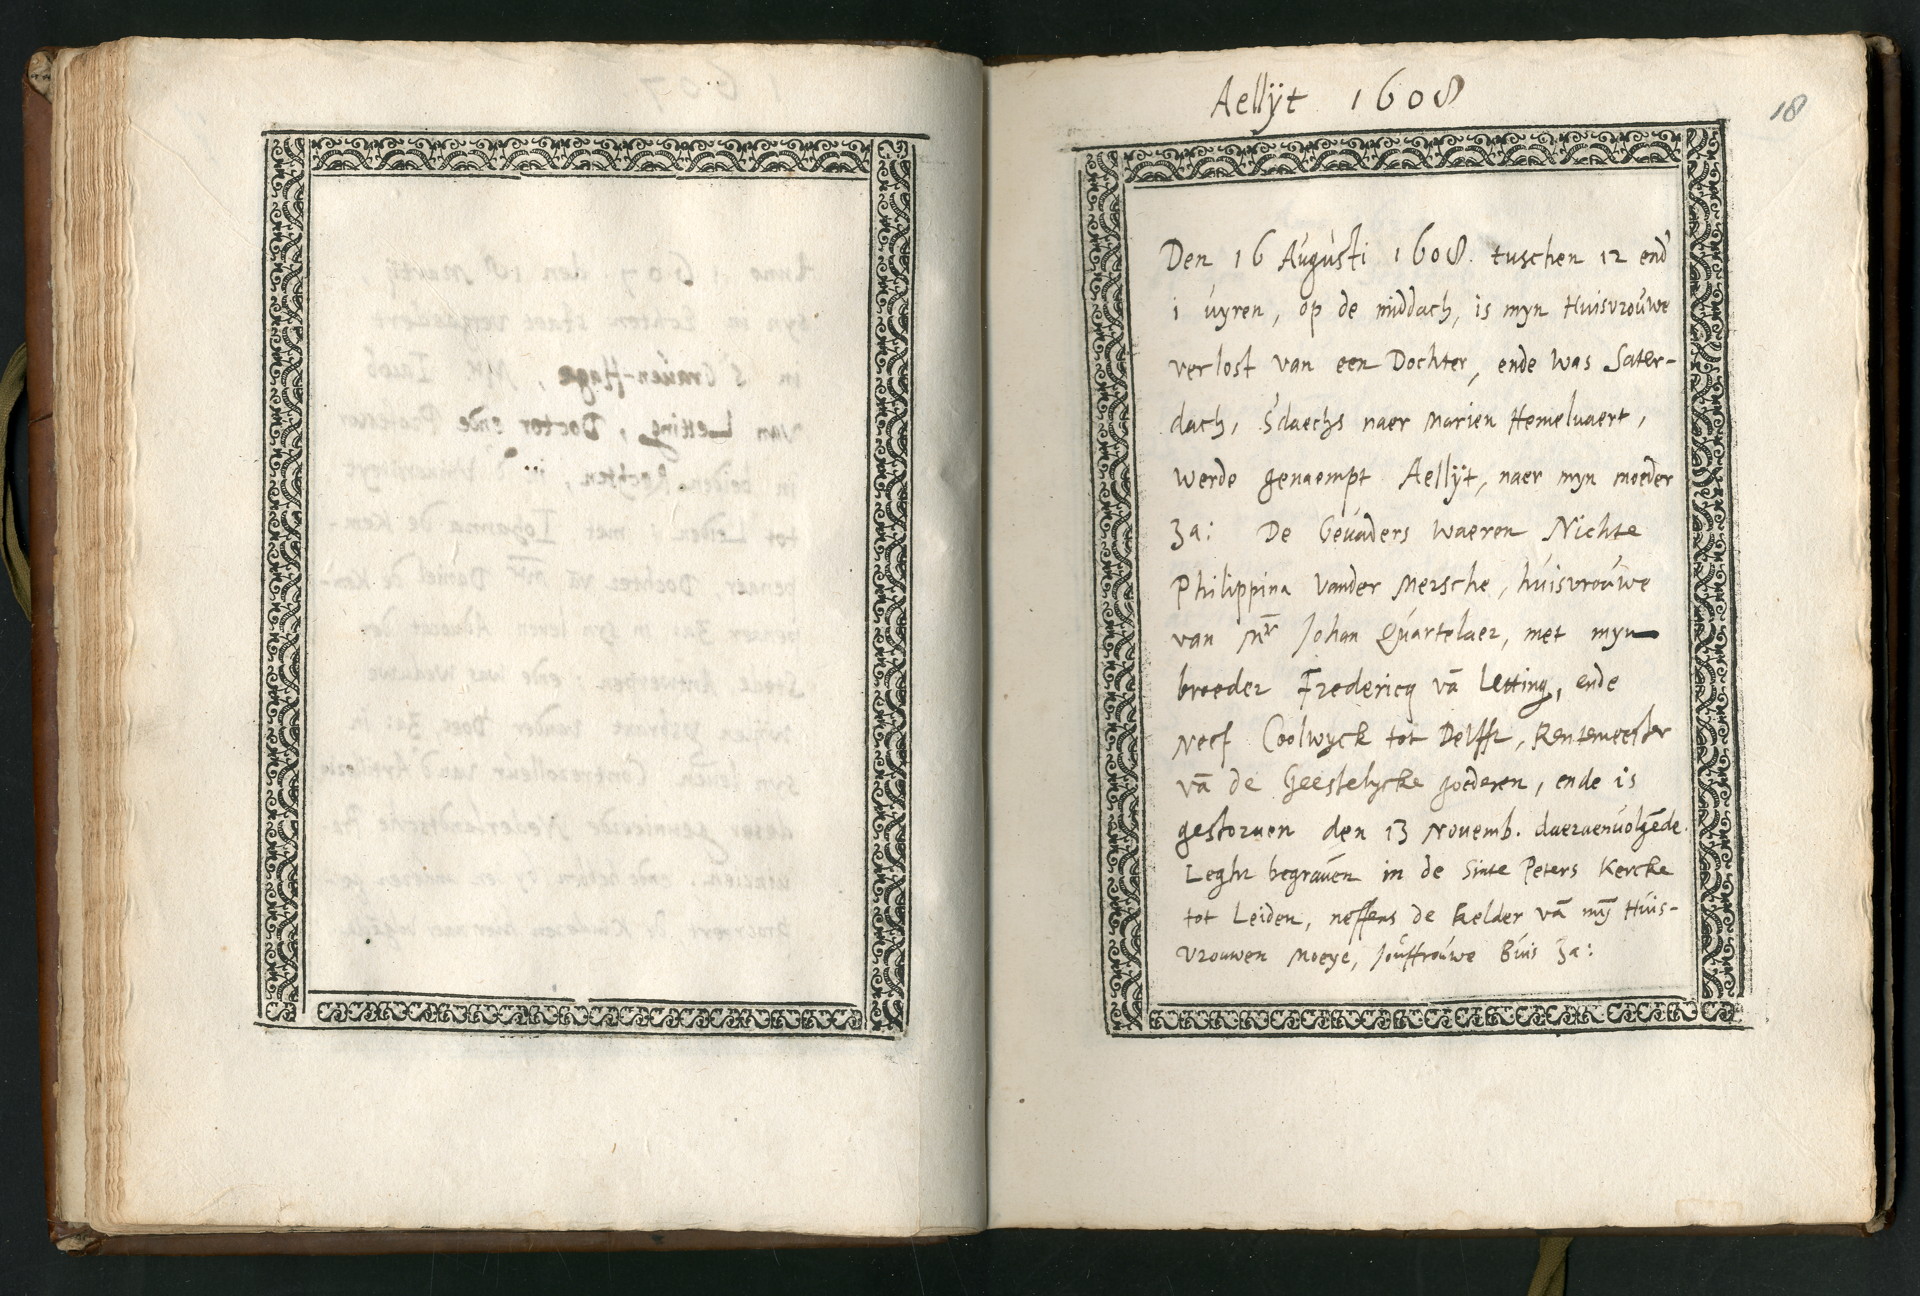 Aellÿt 1608
18
Den 16 Augusti 1608. tuschen 12 end
1 uyren, op de middach, is myn Huisvrouwe
verlost van een Dochter, ende was Sater-
dach, s'daechs naer Marien Hemelvaert,
werde genaempt Aellÿt, naer myn moeder
Za: De Gevaders waeren Nichte
Philippina vander Mersche, huisvrouwe
van Mr Johan Quartelaer, met myn
broeder Fredericq vā Letting, ende
Neef Coolwyck tot Delfft, Rentemeester
vā de Geestelycke goederen, ende is
gestorven den 13 Novemb. daeraenvolgēde.
Leght begraven in de Sinte Peters Kercke
tot Leiden, neffens de kelder vā mȳ Huis-
vrouwen Moeye, Jouffrouwe Buis Za: